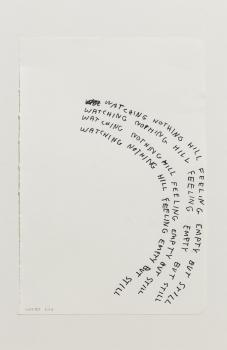 WATCHING NOTHING HILL FEELING EMPTY BUT STILL
WATCHING NOTHING HILL FEELING EMPTY BUT STILL
WATCHING NOTHING HILL FEELING EMPTY BUT STILL
WATCHING NOTHING HILL FEELING EMPTY BUT STILL